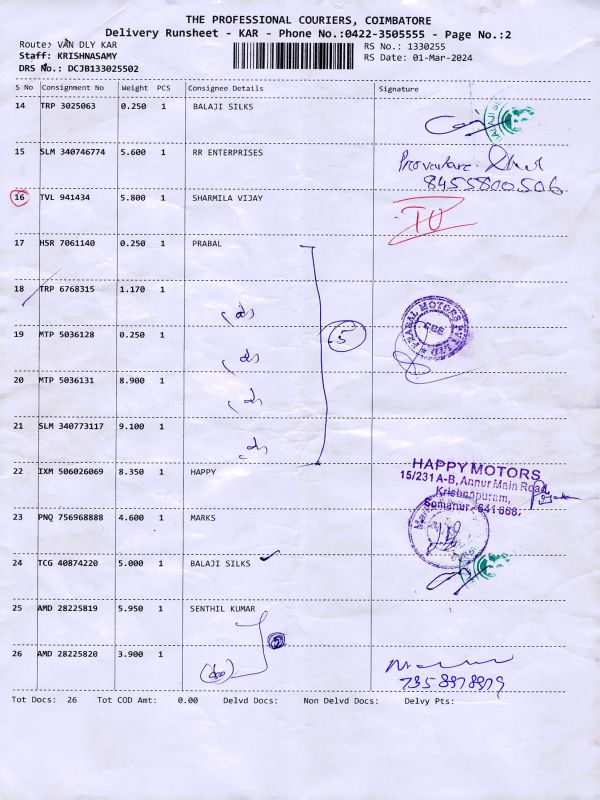 THE PROFESSIONAL COURIERS, COIMBATORE
Delivery Runsheet - KAR - Phone No.:0422-3505555 - Page No.:2
Route: VAN DLY KAR
RS No.: 1330255
Staff: KRISHNASAMY
RS Date: 01-Mar-2024
DRS No.: DCJB133025502
S No Consignment No Weight PCS Consignee Details Signature
14 TRP 3025063 0.250 1 BALAJI SILKS
15 SLM 340746774 5.600 1 RR ENTERPRISES
8455800506
16 TVL 941434 5.800 1 SHARMILA VIJAY
17 HSR 7061140 0.250 1 PRABAL
18 TRP 6768315 1.170 1
MOTORS PVT LTD
CBE
5
19 MTP 5036128 0.250 1
20 MTP 5036131 8.900 1
21 SLM 340773117 9.100 1
22 IXM 506026069 8.350 1 HAPPY
HAPPY MOTORS
15/231 A-B, Annur Main Road,
Krishnapuram,
Somanur - 641 668.
23 PNQ 756968888 4.600 1 MARKS
24 TCG 40874220 5.000 1 BALAJI SILKS
25 AMD 28225819 5.950 1 SENTHIL KUMAR
26 AMD 28225820 3.900 1
Tot Docs: 26 Tot COD Amt: 0.00 Delvd Docs: Non Delvd Docs: Delvy Pts: